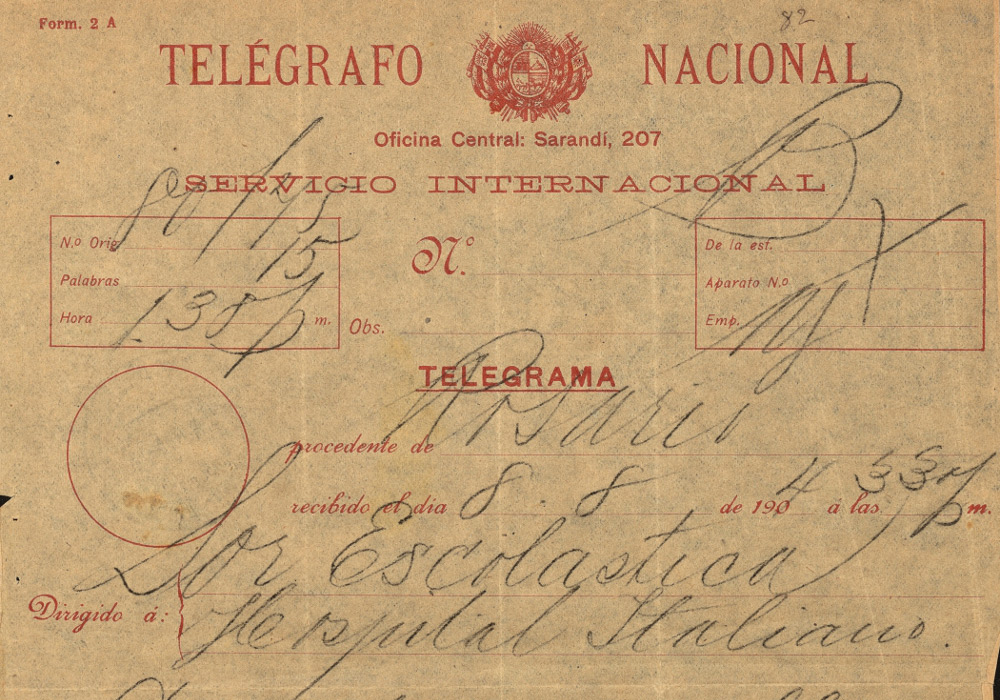 Form. 2 A
82
TELÉGRAFO NACIONAL
Oficina Central: Sarandí, 207
SERVICIO INTERNACIONAL
N.º Orig. 80/175
Palabras 15
Hora 1 38 p m.
N.º
Obs.
De la est.
Aparato N.º
Emp.
TELEGRAMA
procedente de Rosario
recibido el dia 8. 8 de 1904 á las 3 37 p m.
Dirigido á: Sor Escolastica
Hospital Italiano.